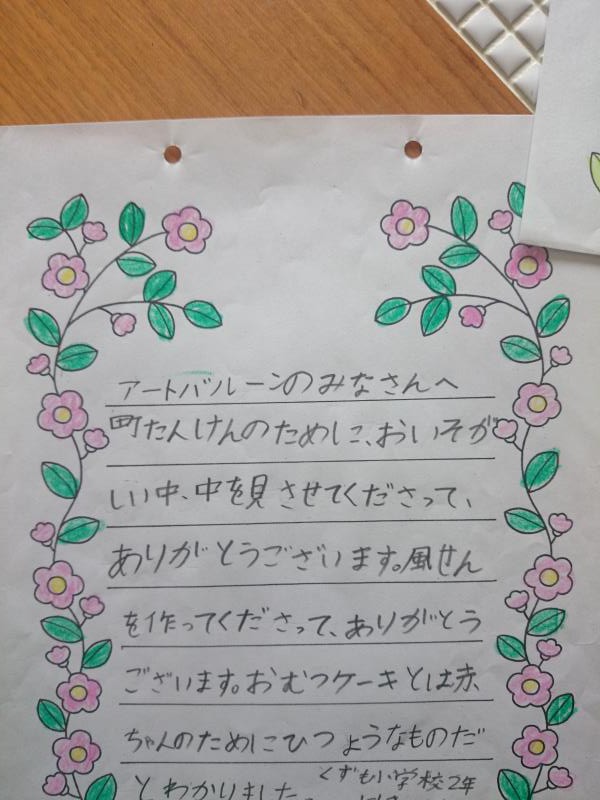 アートバルーンのみなさんへ
町たんけんのために、おいそが
しい中、中を見させてくださって、
ありがとうございます。風せん
を作ってくださって、ありがとう
ございます。おむつケーキとは赤
ちゃんのためにひつようなものだ
とわかりました。
くずも小学校2年